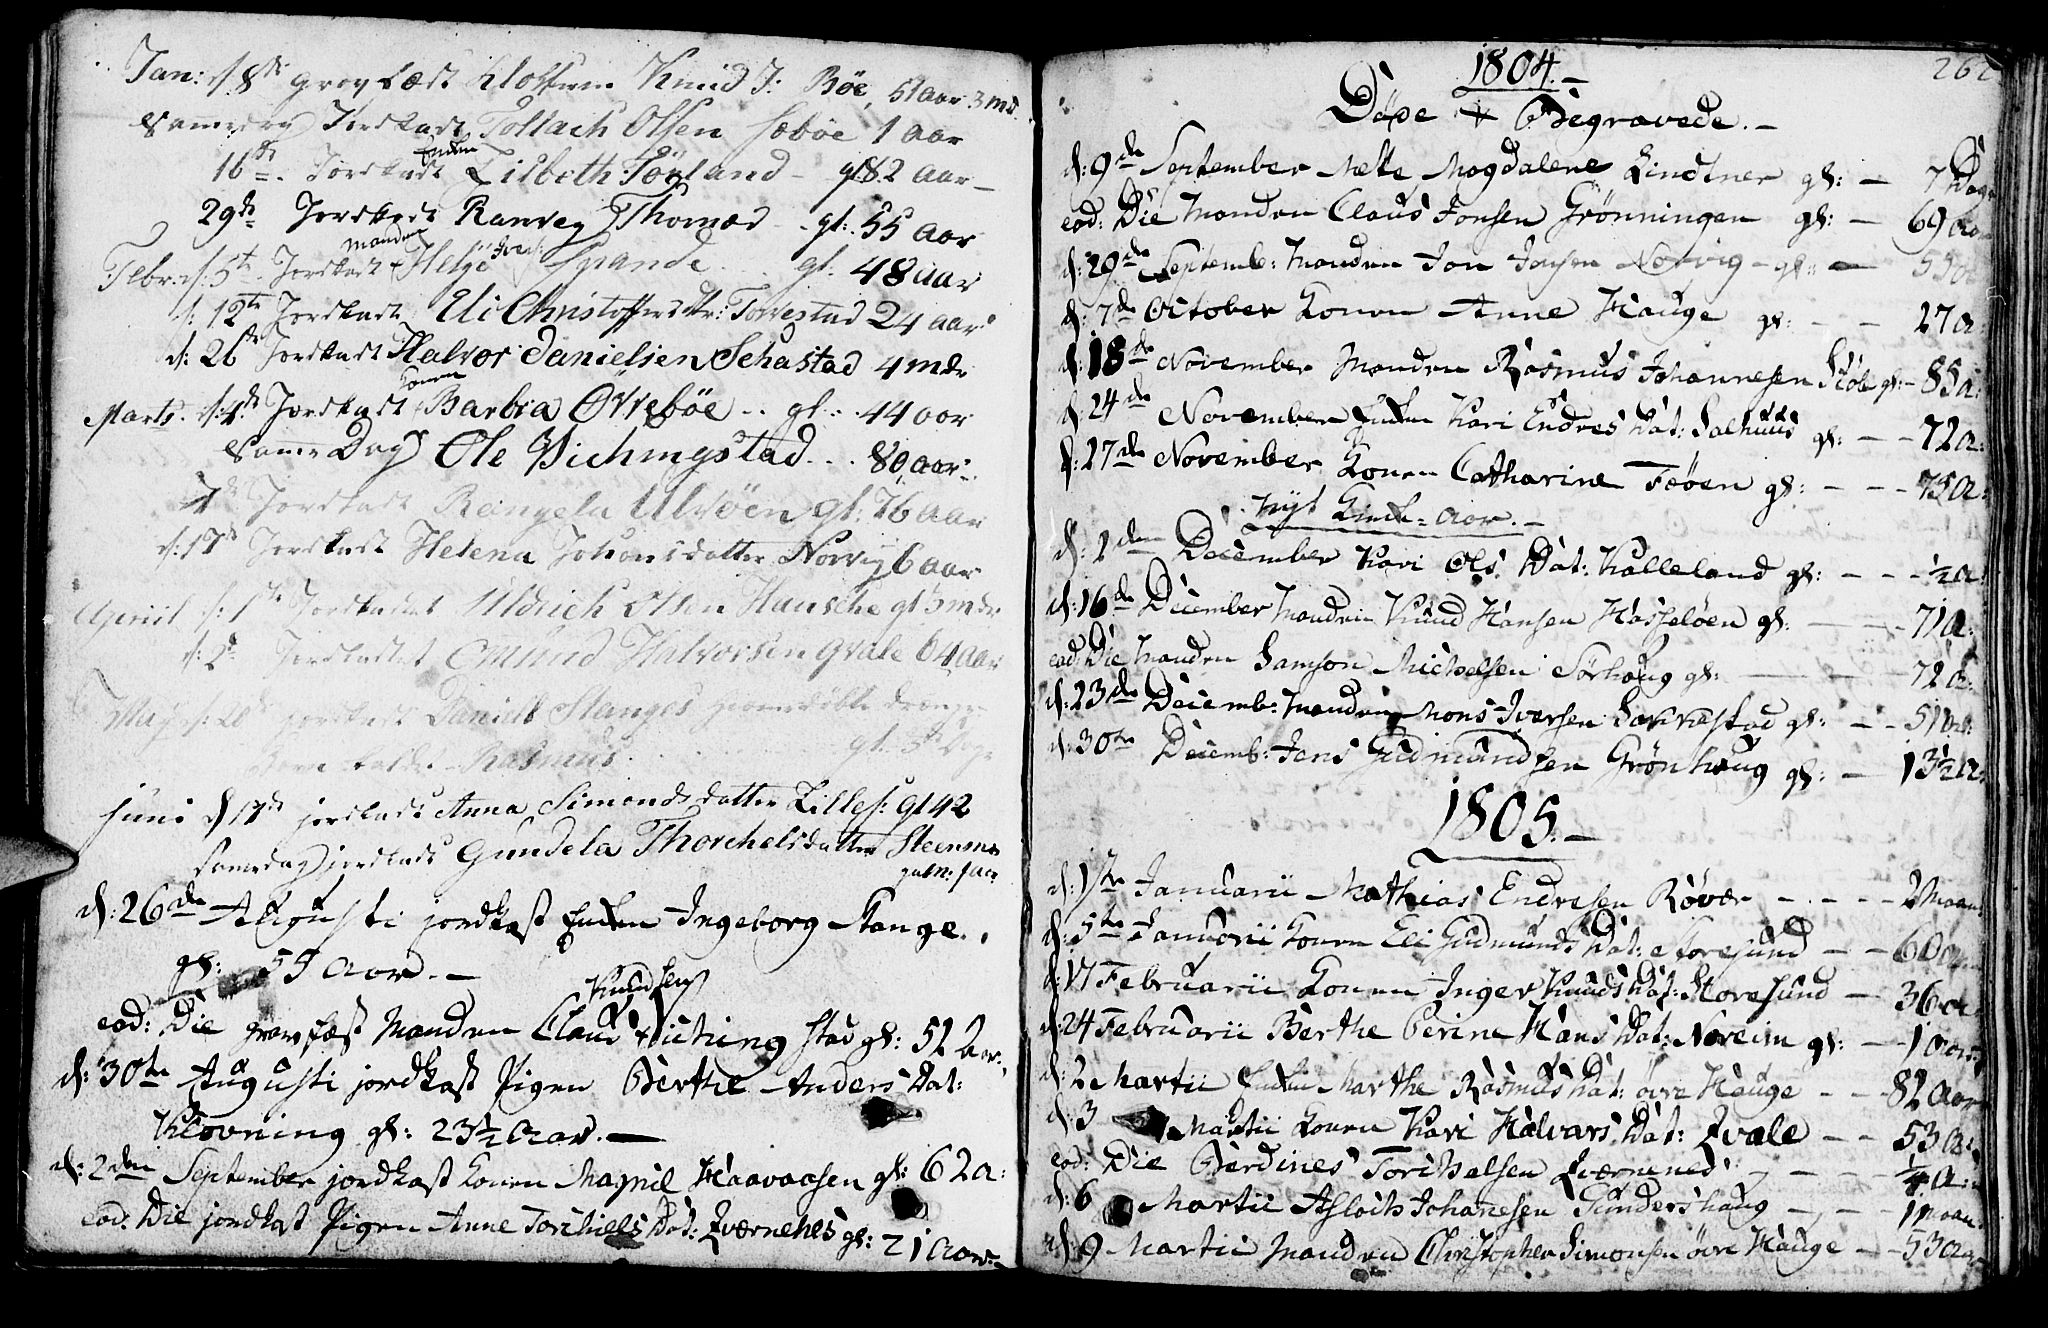 Jan: d: 8de gravfæst Knud J: Böe, 51 Aar 3 md
Samedag Jordkast Tollach Olsen Sæböe 1 Aar
16de Jordkast Enken Lisbeth Törland - gl 82 Aar
29de Jordkast Ranveg Thomæd - gl: 55 Aar
Febr: d: 5te Jordkast Manden Helje Ivers: Spande gl: 48 Aar
d: 12te Jordkast Eli Christoffersdtr: Torrestad 24 Aar
d: 26de Jordkast Halvor Danielsen Sehastad 4 mdr
Marts. d: 4de Jordkast konen Barbra Övreböe .. gl: 44 Aar
Samme Dag Ole Vichingstad ... 80 Aar
7de Jordkast Rangela Ulvöen gl: 76 Aar
d: 17de Jordkast Helena Johansdatter Norvig 6 Aar
Apriil d: 1te Jordkastet Uldrich Olsen Hausche gl 3 mdr
d: 2de Jordkastet Omund Halvorsen Qvale 64 Aar
May d: 20de jordkast Daniel Stanges hiemedöbte drenge
Barn kaldet Rasmus gl: 5te Dage
Juni d 17de jordkast Anna Simonds datter Lilles: gl 42
samedag jordkast Gundela Thorchelsdatter Steensnes
gaml: Aar
d: 26de Augusti jordkast Enken Ingeborg Stange.
gl: 55 Aar. -
eod: Die gravfæst Manden Claus Knudsen Vichingstad gl: 52 Aar.
d: 30te Augusti jordkast Pigen Berthe Anders Dat:
Klovning gl: 23½ Aar. -
d: 2den September jordkast konen Magnil Haavaasen gl: 62 a:
eod: Die jordkast Pigen Anne Torchiels Dat: Qværnenes gl: 21 Aar. -
1804. - 262
Döde & Begravede. -
d: 9de September Mette Magdalene Lindtner gl: - 7 Dage
eod: Die Manden Claus Jonsen Grönningen gl: - 69 Aar
d: 29de Septemb: Manden Jon Jonsen Norvig - gl: - 55 a
d: 7de October Konen Anne Hauge gl: - - 27 a:
d: 18de November Manden Rasmus Johannesen gl: - 85 a:
d: 24de November Enken Kari Endres Dat: Salhuus gl: - - 72 a:
d: 27de November Konen Catharine Feöen gl: - - - 75 a:
Nyt Kirke-Aar. -
d: 2den December Kari Ols Dat: Kalleland gl: - - - ½ a:
d: 16de December Manden Knud Hansen Hasseløen gl: - - 71 a:
eod: Die Manden Samson Michelsen Sörhaug gl: - - 72 a:
d: 23de Decemb: Manden Mons Iversen Sakkestad gl: - - 51 a:
d: 30te Decemb: Jens Gudmundsen Grönhaug gl: - 13½ a:
1805. -
d: 1ste Januarii Mathias Endresen Rövær - - - - 2 Maan:
d: 5te Januarii Konen Eli Gudmunds Dat: Storesund - - 60 Aar
d: 17 Februarii Konen Inger Knuds Dat: Storesund - 36 a
d: 24 Februarii Berthe Perine Hans Dat: Noreim gl: - 1 Aar
d: 2 Martii Enken Marthe Rasmus Dat: övre Hauge - - 82 Aar
d: 3 Martii Konen Kari Halvars Dat: Qvale - - 53 a:
eod: Die Berdines Torchelsen Qværnenes - - ¼ a:
d: 6 Martii Asloch Johanesen Gunders haug - - - 1 Maan:
d: 9 Martii Manden Christopher Simonsen övre Hauge - - 53 a: